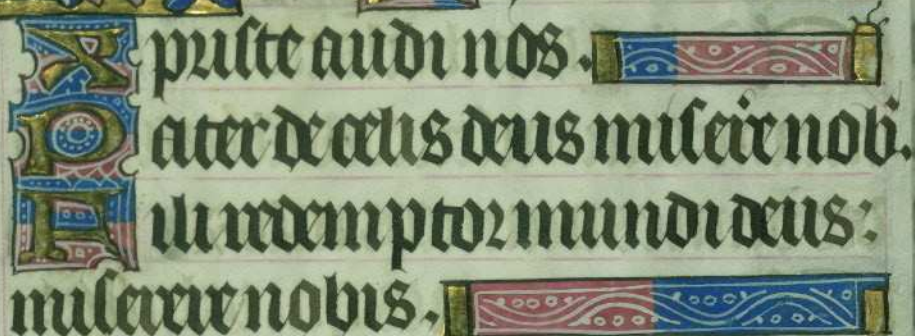 Xpriste audi nos.
Pater de celis deus miserere nob.
Fili redemptor mundi deus:
miserere nobis.